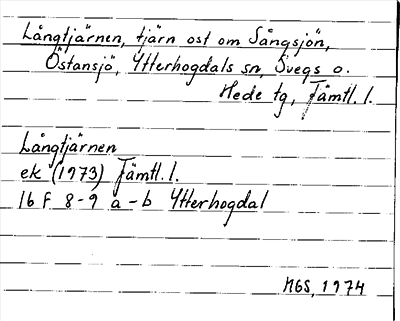 Långtjärnen, tjärn ost om Sångsjön,
Östansjö, Ytterhogdals sn, Svegs o.
Hede tg, Jämtl. l.
Långtjärnen
ek (1973) Jämtl. l.
16 F 8-9 a-b Ytterhogdal
MGS, 1974